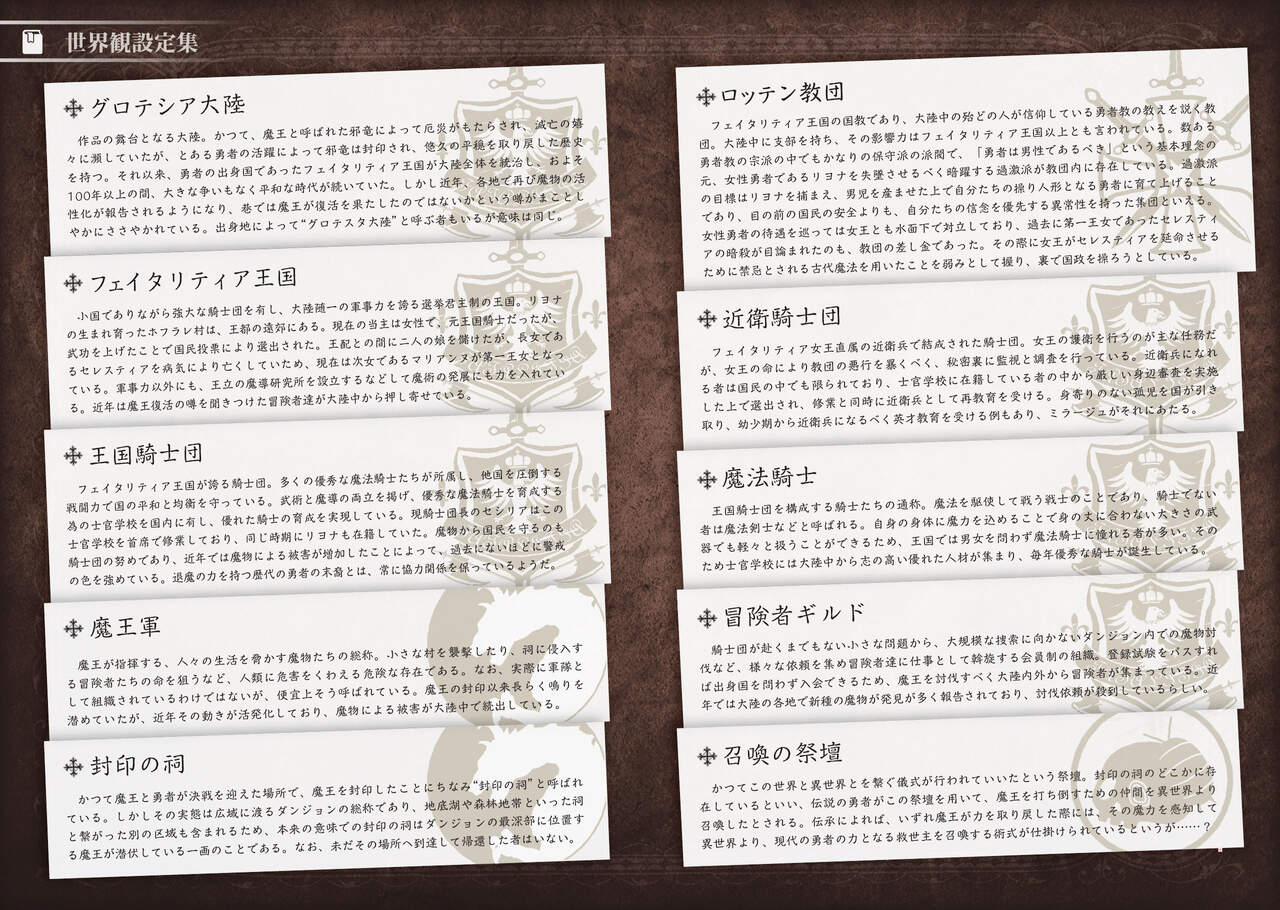 世界観設定集
グロテシア大陸
作品の舞台となる大陸。かつて、魔王と呼ばれた邪竜によって厄災がもたらされ、滅亡の嬉
々に瀕していたが、とある勇者の活躍によって邪竜は封印され、悠久の平穏を取り戻した歴史
を持つ。それ以来、勇者の出身国であったフェイタリティア王国が大陸全体を統治し、およそ
100年以上の間、大きな争いもなく平和な時代が続いていた。しかし近年、各地で再び魔物の活
性化が報告されるようになり、巷では魔王が復活を果たしたのではないかという噂がまことし
やかにささやかれている。出身地によって“グロテスタ大陸”と呼ぶ者もいるが意味は同じ。
フェイタリティア王国
小国でありながら強大な騎士団を有し、大陸随一の軍事力を誇る選挙君主制の王国。リヨナ
の生まれ育ったホフラレ村は、王都の遠郊にある。現在の当主は女性で、元王国騎士だったが、
武功を上げたことで国民投票により選出された。王配との間に二人の娘を儲けたが、長女であ
るセレスティアを病気により亡くしていため、現在は次女であるマリアンヌが第一王女となっ
ている。軍事力以外にも、王立の魔導研究所を設立するなどして魔術の発展にも力を入れてい
る。近年は魔王復活の噂を聞きつけた冒険者達が大陸中から押し寄せている。
王国騎士団
フェイタリティア王国が誇る騎士団。多くの優秀な魔法騎士たちが所属し、他国を圧倒する
戦闘力で国の平和と均衡を守っている。武術と魔導の両立を掲げ、優秀な魔法騎士を育成する
為の士官学校を国内に有し、優れた騎士の育成を実現している。現騎士団長のセシリアはこの
士官学校を首席で修業しており、同じ時期にリヨナも在籍していた。魔物から国民を守るのも
騎士団の努めであり、近年では魔物による被害が増加したことによって、過去にないほどに警戒
の色を強めている。退魔の力を持つ歴代の勇者の末裔とは、常に協力関係を保っているようだ。
魔王軍
魔王が指揮する、人々の生活を脅かす魔物たちの総称。小さな村を襲撃したり、祠に侵入す
る冒険者たちの命を狙うなど、人類に危害をくわえる危険な存在である。なお、実際に軍隊と
して組織されているわけではないが、便宜上そう呼ばれている。魔王の封印以来長らく鳴りを
潜めていたが、近年その動きが活発化しており、魔物による被害が大陸中で続出している。
封印の祠
かつて魔王と勇者が決戦を迎えた場所で、魔王を封印したことにちなみ“封印の祠”と呼ばれ
ている。しかしその実態は広域に渡るダンジョンの総称であり、地底湖や森林地帯といった祠
と繋がった別の区域も含まれるため、本来の意味での封印の祠はダンジョンの最深部に位置す
る魔王が潜伏している一画のことである。なお、未だその場所へ到達して帰還した者はいない。
ロッテン教団
フェイタリティア王国の国教であり、大陸中の殆どの人が信仰している勇者教の教えを説く教
団。大陸中に支部を持ち、その影響力はフェイタリティア王国以上とも言われている。数ある
勇者教の宗派の中でもかなりの保守派の派閥で、「勇者は男性であるべき」という基本理念の
元、女性勇者であるリヨナを失墜させるべく暗躍する過激派が教団内に存在している。過激派
の目標はリヨナを捕まえ、男児を産ませた上で自分たちの操り人形となる勇者に育て上げること
であり、目の前の国民の安全よりも、自分たちの信念を優先する異常性を持った集団といえる。
女性勇者の待遇を巡っては女王とも水面下で対立しており、過去に第一王女であったセレスティ
アの暗殺が目論まれたのも、教団の差し金であった。その際に女王がセレスティアを延命させる
ために禁忌とされる古代魔法を用いたことを弱みとして握り、裏で国政を操ろうとしている。
近衛騎士団
フェイタリティア女王直属の近衛兵で結成された騎士団。女王の護衛を行うのが主な任務だ
が、女王の命により教団の悪行を暴くべく、秘密裏に監視と調査を行っている。近衛兵になれ
る者は国民の中でも限られており、士官学校に在籍している者の中から厳しい身辺審査を実施
した上で選出され、修業と同時に近衛兵として再教育を受ける。身寄りのない孤児を国が引き
取り、幼少期から近衛兵になるべく英才教育を受ける例もあり、ミラージュがそれにあたる。
魔法騎士
王国騎士団を構成する騎士たちの通称。魔法を駆使して戦う戦士のことであり、騎士でない
者は魔法剣士などと呼ばれる。自身の身体に魔力を込めることで身の丈に合わない大きさの武
器でも軽々と扱うことができるため、王国では男女を問わず魔法騎士に憧れる者が多い。その
ため士官学校には大陸中から志の高い優れた人材が集まり、毎年優秀な騎士が誕生している。
冒険者ギルド
騎士団が赴くまでもない小さな問題から、大規模な捜索に向かないダンジョン内での魔物討
伐など、様々な依頼を集め冒険者達に仕事として斡旋する会員制の組織。登録試験をパスすれ
ば出身国を問わず入会できるため、魔王を討伐すべく大陸内外から冒険者が集まっている。近
年では大陸の各地で新種の魔物が発見が多く報告されており、討伐依頼が殺到しているらしい。
召喚の祭壇
かつてこの世界と異世界とを繋ぐ儀式が行われていたという祭壇。封印の祠のどこかに存
在しているといい、伝説の勇者がこの祭壇を用いて、魔王を打ち倒すための仲間を異世界より
召喚したとされる。伝承によれば、いずれ魔王が力を取り戻した際には、その魔力を感知して
異世界より、現代の勇者の力となる救世主を召喚する術式が仕掛けられているというが……？